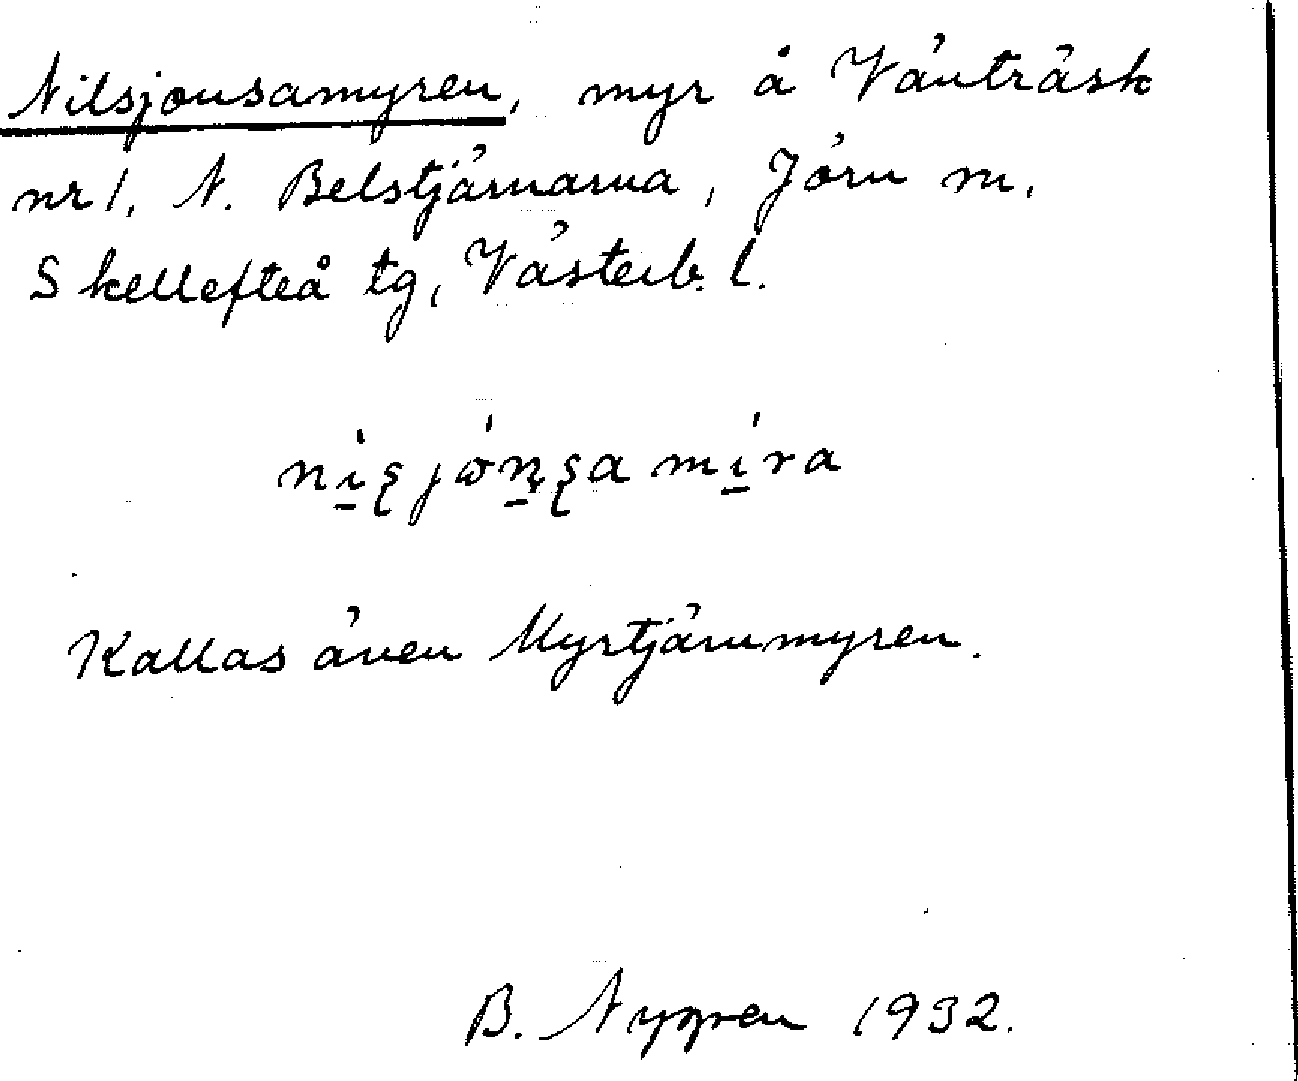 Nilsjonsamyren, myr å Vänträsk
nr 1, N. Belstjärnarna, Jörn m.
Skellefteå tg, Västerb. l.
ni̲ʂjónʂa mi̲ra
Kallas även Myrtjärnmyren.
B. Nygren 1932.